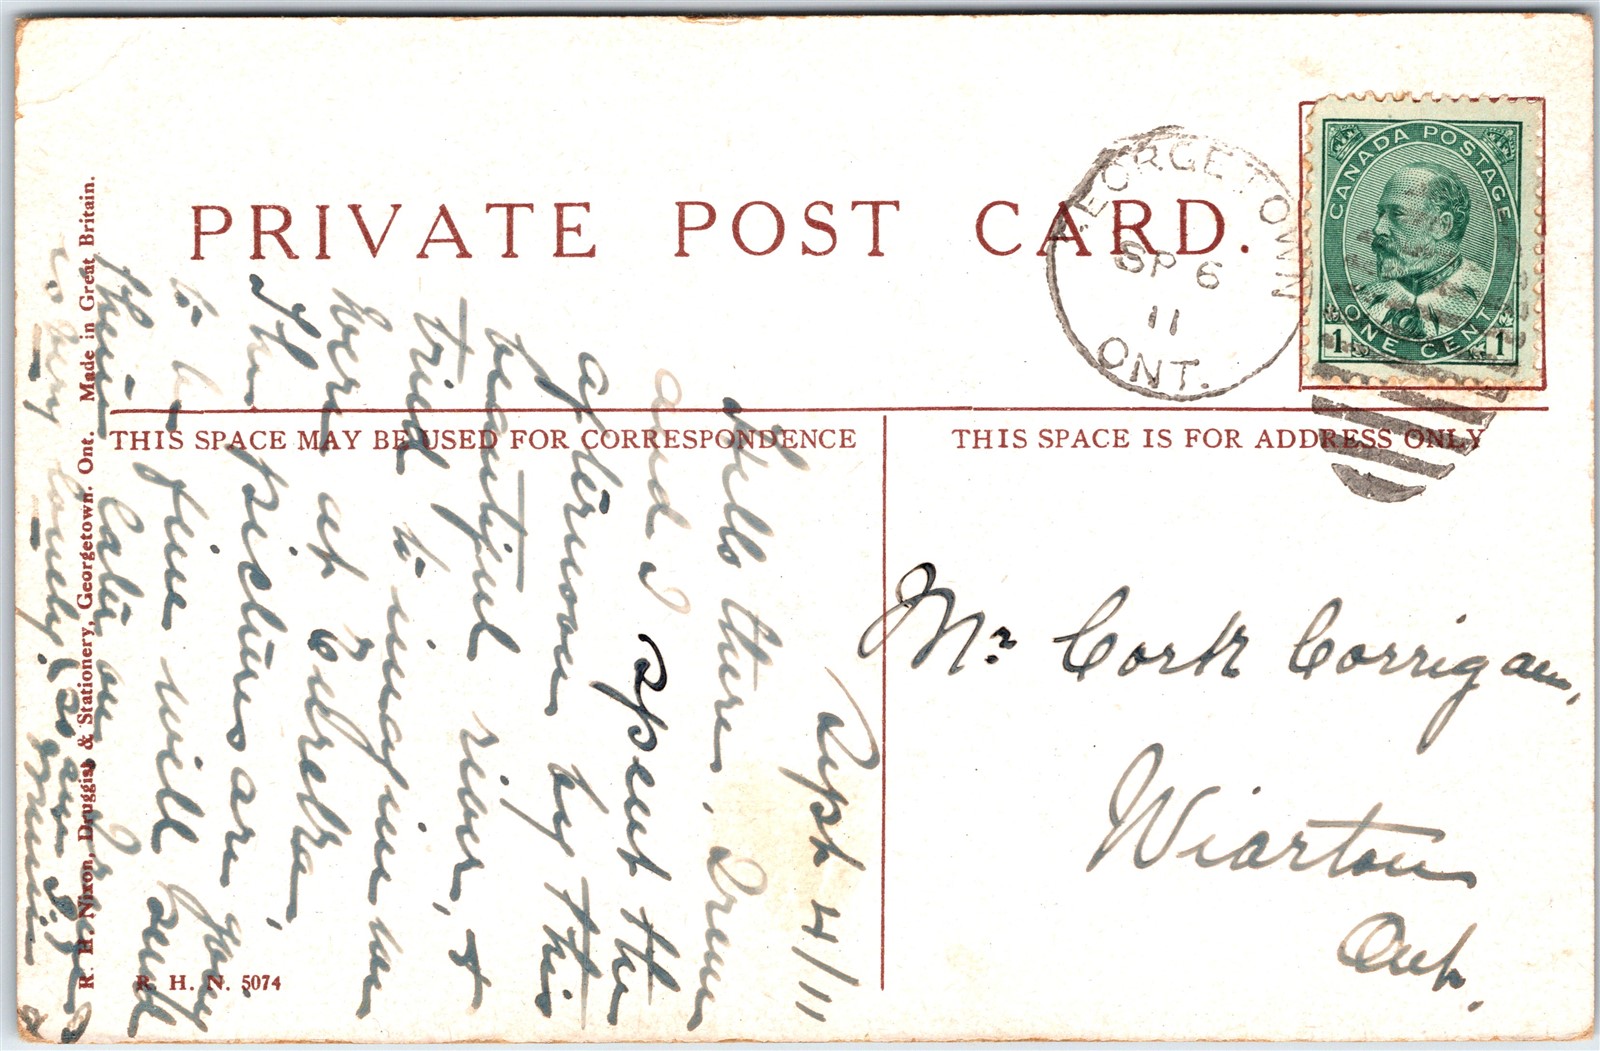 PRIVATE POST CARD.
GEORGETOWN
SP 6
11
ONT.
CANADA POSTAGE
1 ONE CENT 1
THIS SPACE MAY BE USED FOR CORRESPONDENCE
THIS SPACE IS FOR ADDRESS ONLY
Sept 4/11
Hello there, Irene
and I spent the
afternoon by this
beautiful river, &
tried to imagine
here at Eureka,
The pictures are going
to be fine will send
them later on
is very lonely, (so am I)
Minnie
Mr Cork Corrigan,
Wiarton
Ont.
R. H. Nixon, Druggist & Stationery, Georgetown. Ont. Made in Great Britain.
R. H. N. 5074